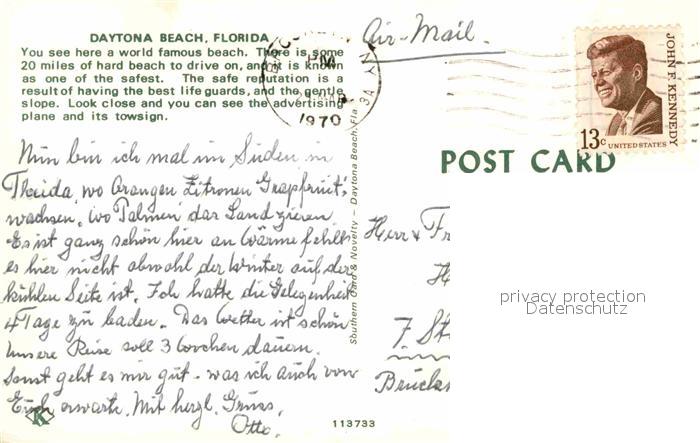 DAYTONA BEACH, FLORIDA
You see here a world famous beach. There is some
20 miles of hard beach to drive on, and it is known
as one of the safest. The safe reputation is a
result of having the best life guards, and the gentle
slope. Look close and you can see the advertising
plane and its towsign.
Nun bin ich mal im Süden in
Florida, wo Orangen Zitronen Grapfruit
wachsen. Wo Palmen das Land zieren
Es ist ganz schön hier an Wärme fehlt
es hier nicht obwohl der Winter auf der
kühlen Seite ist. Ich hatte die Gelegenheit
4 Tage zu baden. Das Wetter ist schön
Unsere Reise soll 3 Wochen dauern.
Sonst geht es mir gut - was ich auch von
Euch erwarte. Mit herzl. Gruss,
Otto.
K
113733
Southern Card & Novelty — Daytona Beach, Fla.
Air-Mail.
PM
1970
NY
JOHN F. KENNEDY
13c UNITED STATES
POST CARD
Herr & Fr
H
7. St
Brucks
privacy protection
Datenschutz